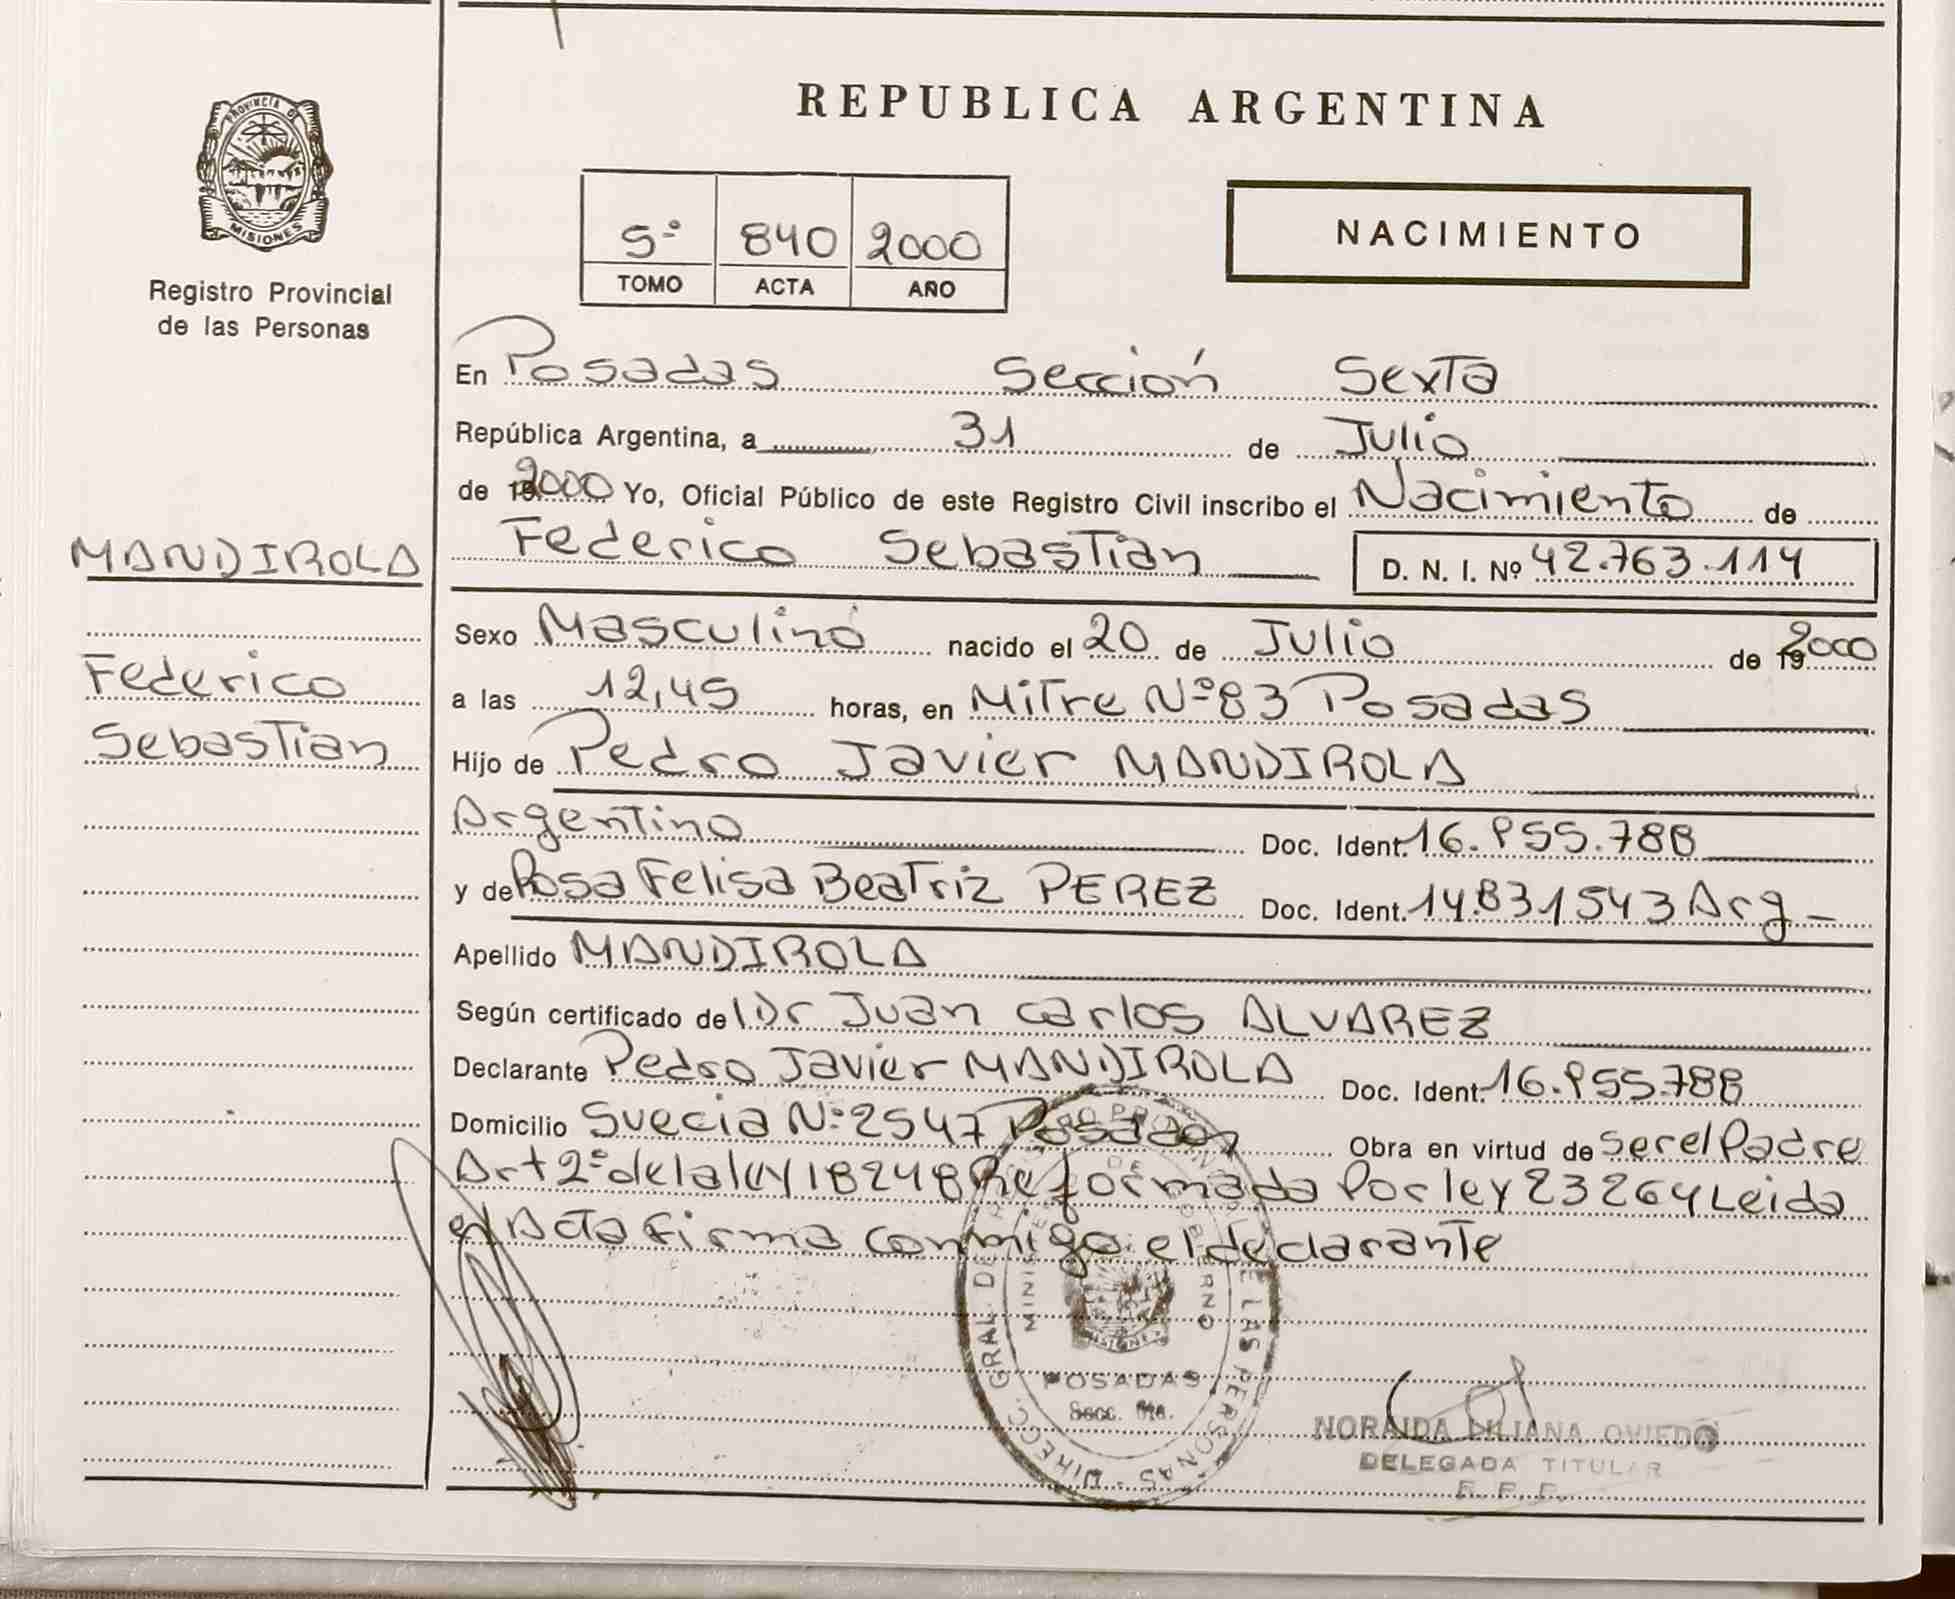 REPUBLICA ARGENTINA
PROVINCIA DE MISIONES
Registro Provincial
de las Personas
5º 840 2000
TOMO ACTA AÑO
NACIMIENTO
En Posadas Sección Sexta
República Argentina, a 31 de Julio
de 2000 Yo, Oficial Público de este Registro Civil inscribo el Nacimiento de
Federico Sebastian D. N. I. Nº 42.763.114
MANDIROLA
Federico
Sebastian
Sexo Masculino nacido el 20 de Julio de 2000
a las 12,45 horas, en Mitre Nº 83 Posadas
Hijo de Pedro Javier MANDIROLA
Argentino Doc. Ident. 16.955.788
y de Rosa Felisa Beatriz PEREZ Doc. Ident. 14.831543 Arg
Apellido MANDIROLA
Según certificado de l Dr Juan Carlos ALVAREZ
Declarante Pedro Javier MANDIROLA Doc. Ident. 16.955.788
Domicilio Suecia Nº 2547 Posadas Obra en virtud de Ser el Padre
Art 2º de la ley 18248 Reformada Por ley 23264 Leida
el Acta firma conmigo el declarante
DIRECC. GRAL. DE LAS PERSONAS
GOBIERNO
MISIONES
POSADAS
Secc. 6ta.
NORAIDA LILIANA OVIEDO
DELEGADA TITULAR